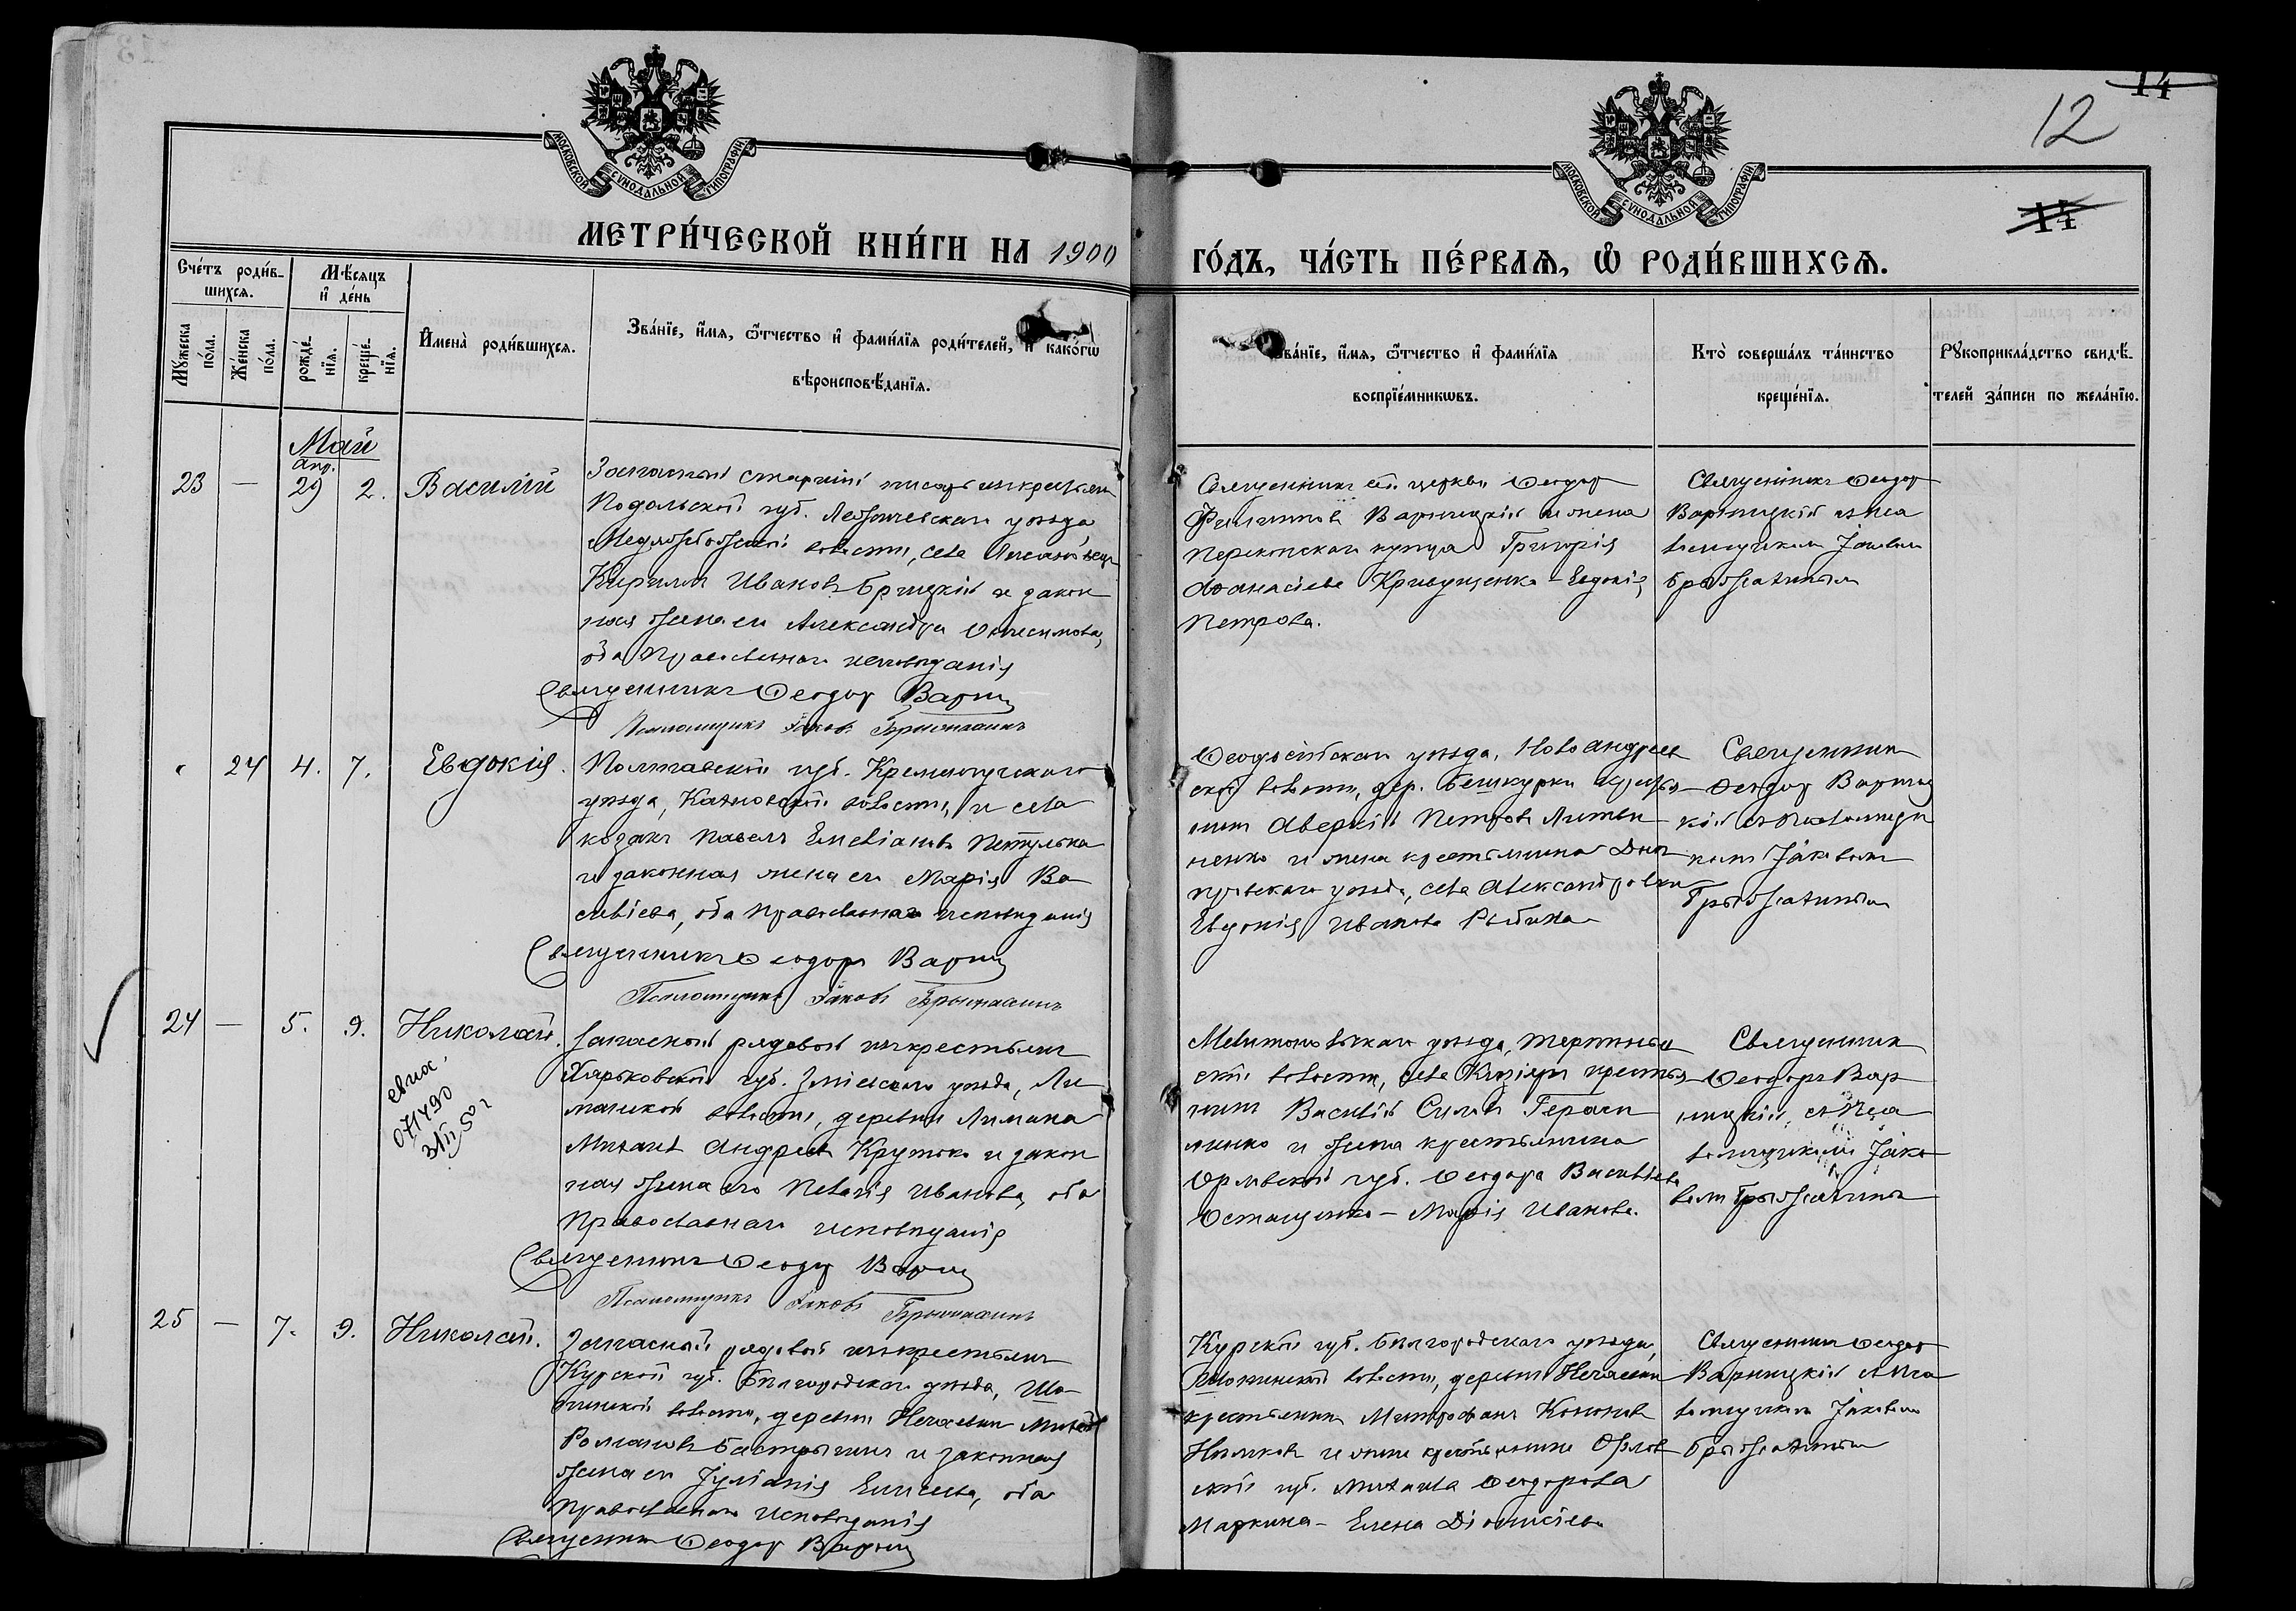 12
14
14
МОСКОВСКОЙ СѴНОДАЛЬНОЙ ТИПОГРАФІИ
МОСКОВСКОЙ СѴНОДАЛЬНОЙ ТИПОГРАФІИ
МЕТРИ́ЧЕСКОЙ КНИ́ГИ НА 1900
ГО́ДЪ, ЧА́СТЬ ПЕ́РВАѦ, Ѡ РОДИ́ВШИХСѦ.
Сче́тъ роди́в-
шихсѧ.
Мѣ́сѧцъ
и҆ де́нь
Мꙋжеска
по́ла.
Же́нска
по́ла.
рожде́-
нїѧ.
креще́-
нїѧ.
И҆мена̀ роди́вшихсѧ.
Зва́нїе, и҆́мѧ, ѻ҆́тчество и҆ фами́лїѧ роди́телей, и҆ како́гѡ
вѣроисповѣ́данїѧ.
Зва́нїе, и҆́мѧ, ѻ҆́тчество и҆ фами́лїѧ
воспрїе́мникѡвъ.
Кто̀ соверша́лъ та́инство
креще́нїѧ.
Рꙋкоприкла́дство свидѣ́-
телей за́писи по жела́нїю.
Май
апр.
23 — 29 2. Василій
Запасный старшій писарь изъ крестьян
Подольской губ. Летичевскаго уѣзда
Меджибожской волости, села
Кирилл Иванов Брицкій и закон
ная жена его Александра Онисимова,
оба Православнаго исповѣданія
Священникъ Ѳеодор Варниц
Псаломщикъ Іаковъ Брыжахинъ
Священник сей церкви Ѳеодор
Филиппов Варницкій и жена
Перекопскаго купца Григорія
Аѳанасіева Кривущенка – Евдокія
Петрова.
Священникъ Ѳеодор
Варницкій съ пса
ломщиком Іаковом
Брыжахиным
24 4. 7. Евдокія.
Полтавской губ. Кременчугскаго
уѣзда, волости, и села
козакъ Павелъ Емеліанов
и законная жена его Марія Ва
силіева, оба православнаго исповѣданія
Священникъ Ѳеодоръ Варниц
Псаломщикъ Іаковъ Брыжахинъ
Ѳеодосійскаго уѣзда, Ново Андреев
ской волости, дер. Бешкурки крестья
нин Аверкій Петров Литви
ненко и жена крестьянина Днѣ
провскаго уѣзда, села Александровки
Евдокія Иванова Рыбина
Священник
Ѳеодор Варниц
кій съ Псаломщи
ком Іаковом
Брыжахиным
24 — 5. 9. Николай.
071490
Запасной рядовой изъ крестьян
Харьковской губ. Зміевскаго уѣзда, Ли
манской волости, деревни Лимана
Михаил Андреев Крутько и закон
ная жена его Пелагія Иванова, оба
Православнаго исповѣданія
Священникъ Ѳеодор Варниц
Псаломщикъ Іаковъ Брыжахинъ
Мелитопольскаго уѣзда,
ской волости, села Кизіяр крестья
нин Василій Силин Гераси
менко и жена крестьянина
Орловской губ. Ѳеодора Васильева
Остащенко – Марія Иванова.
Священник
Ѳеодоръ Вар
ницкій, съ Пса
ломщиком Іако
вом Брыжахиным
25 — 7. 9. Николай.
Запасной рядовой изъ крестьян
Курской губ. Бѣлгородскаго уѣзда, Шо
пинской волости, деревни Нечаевки Михаил
Романов Бастрыгин и законная
жена его Іуліанія Елисеева, оба
Православнаго исповѣданія
Священник Ѳеодор Варниц
Курской губ. Бѣлгородскаго уѣзда,
Шопинской волости, деревни Нечаевки
крестьянин Митрофанъ Кононов
и жена крестьянина Орлов
ской губ. Михаила Ѳеодорова
Маркина – Елена Діонисіева
Священник Ѳеодор
Варницкій съ Пса
ломщиком Іаковом
Брыжахиным